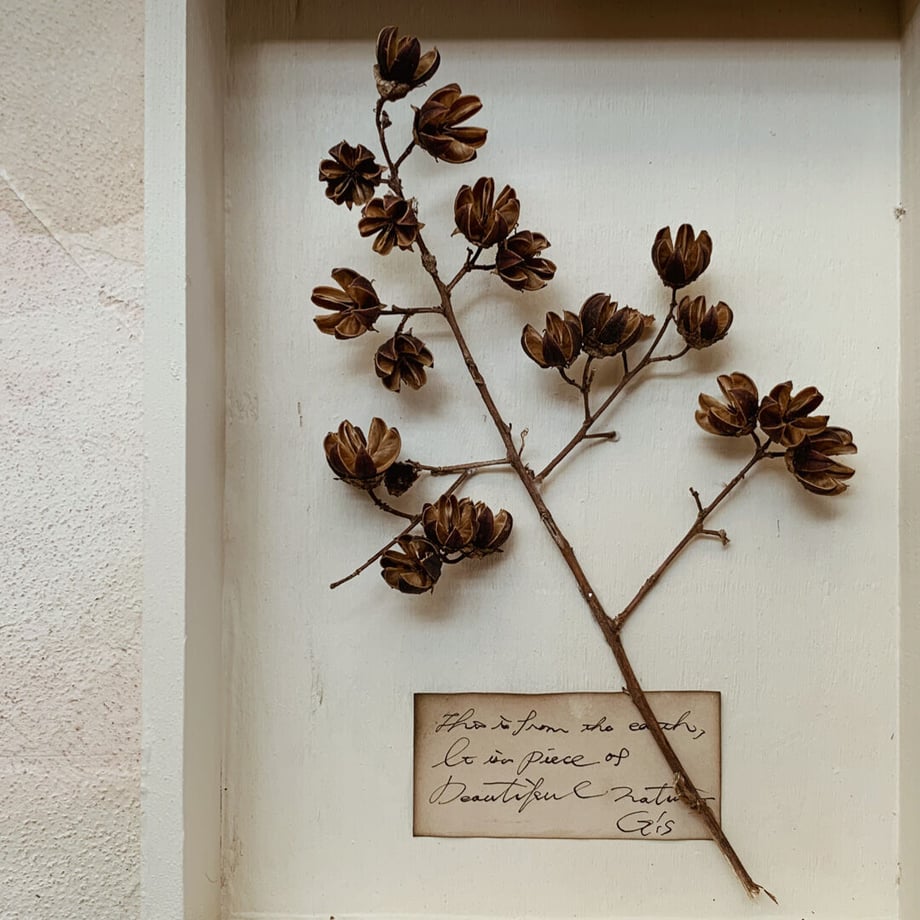 This is from the earth,
It is a piece of
Beautiful nature
G's